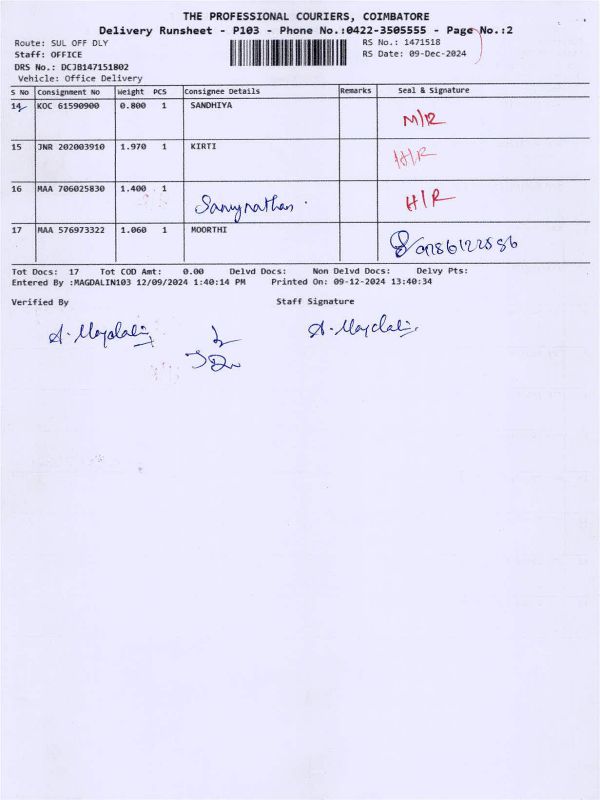 THE PROFESSIONAL COURIERS, COIMBATORE
Delivery Runsheet - P103 - Phone No.:0422-3505555 - Page No.:2
Route: SUL OFF DLY RS No.: 1471518
Staff: OFFICE RS Date: 09-Dec-2024
DRS No.: DCJB147151802
Vehicle: Office Delivery
S No Consignment No Weight PCS Consignee Details Remarks Seal & Signature
14 KOC 61590900 0.800 1 SANDHIYA
M/R
15 JNR 202003910 1.970 1 KIRTI
H/R
16 MAA 706025830 1.400 1
H/R
17 MAA 576973322 1.060 1 MOORTHI
Tot Docs: 17 Tot COD Amt: 0.00 Delvd Docs: Non Delvd Docs: Delvy Pts:
Entered By :MAGDALIN103 12/09/2024 1:40:14 PM Printed On: 09-12-2024 13:40:34
Verified By Staff Signature
A. Magdalin A. Magdalin